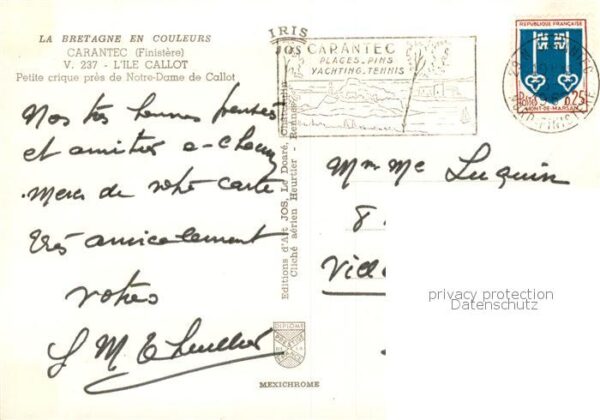 LA BRETAGNE EN COULEURS
CARANTEC (Finistère)
V. 237 - L'ILE CALLOT
Petite crique près de Notre-Dame de Callot
IRIS
JOS
CARANTEC
PLAGES.PINS
YACHTING.TENNIS
REPUBLIQUE FRANÇAISE
Postes 0,25
MONT-DE-MARSAN
Nos très bonnes pensées
et amitiés a
Merci de votre carte
très amicalement
votres
Editions d'Art JOS, Le Doaré, Châteaulin
Cliché aérien Heurtier - Rennes
Mr Me Luquin
8
Ville
privacy protection
Datenschutz
DIPLOME
MEXICHROME